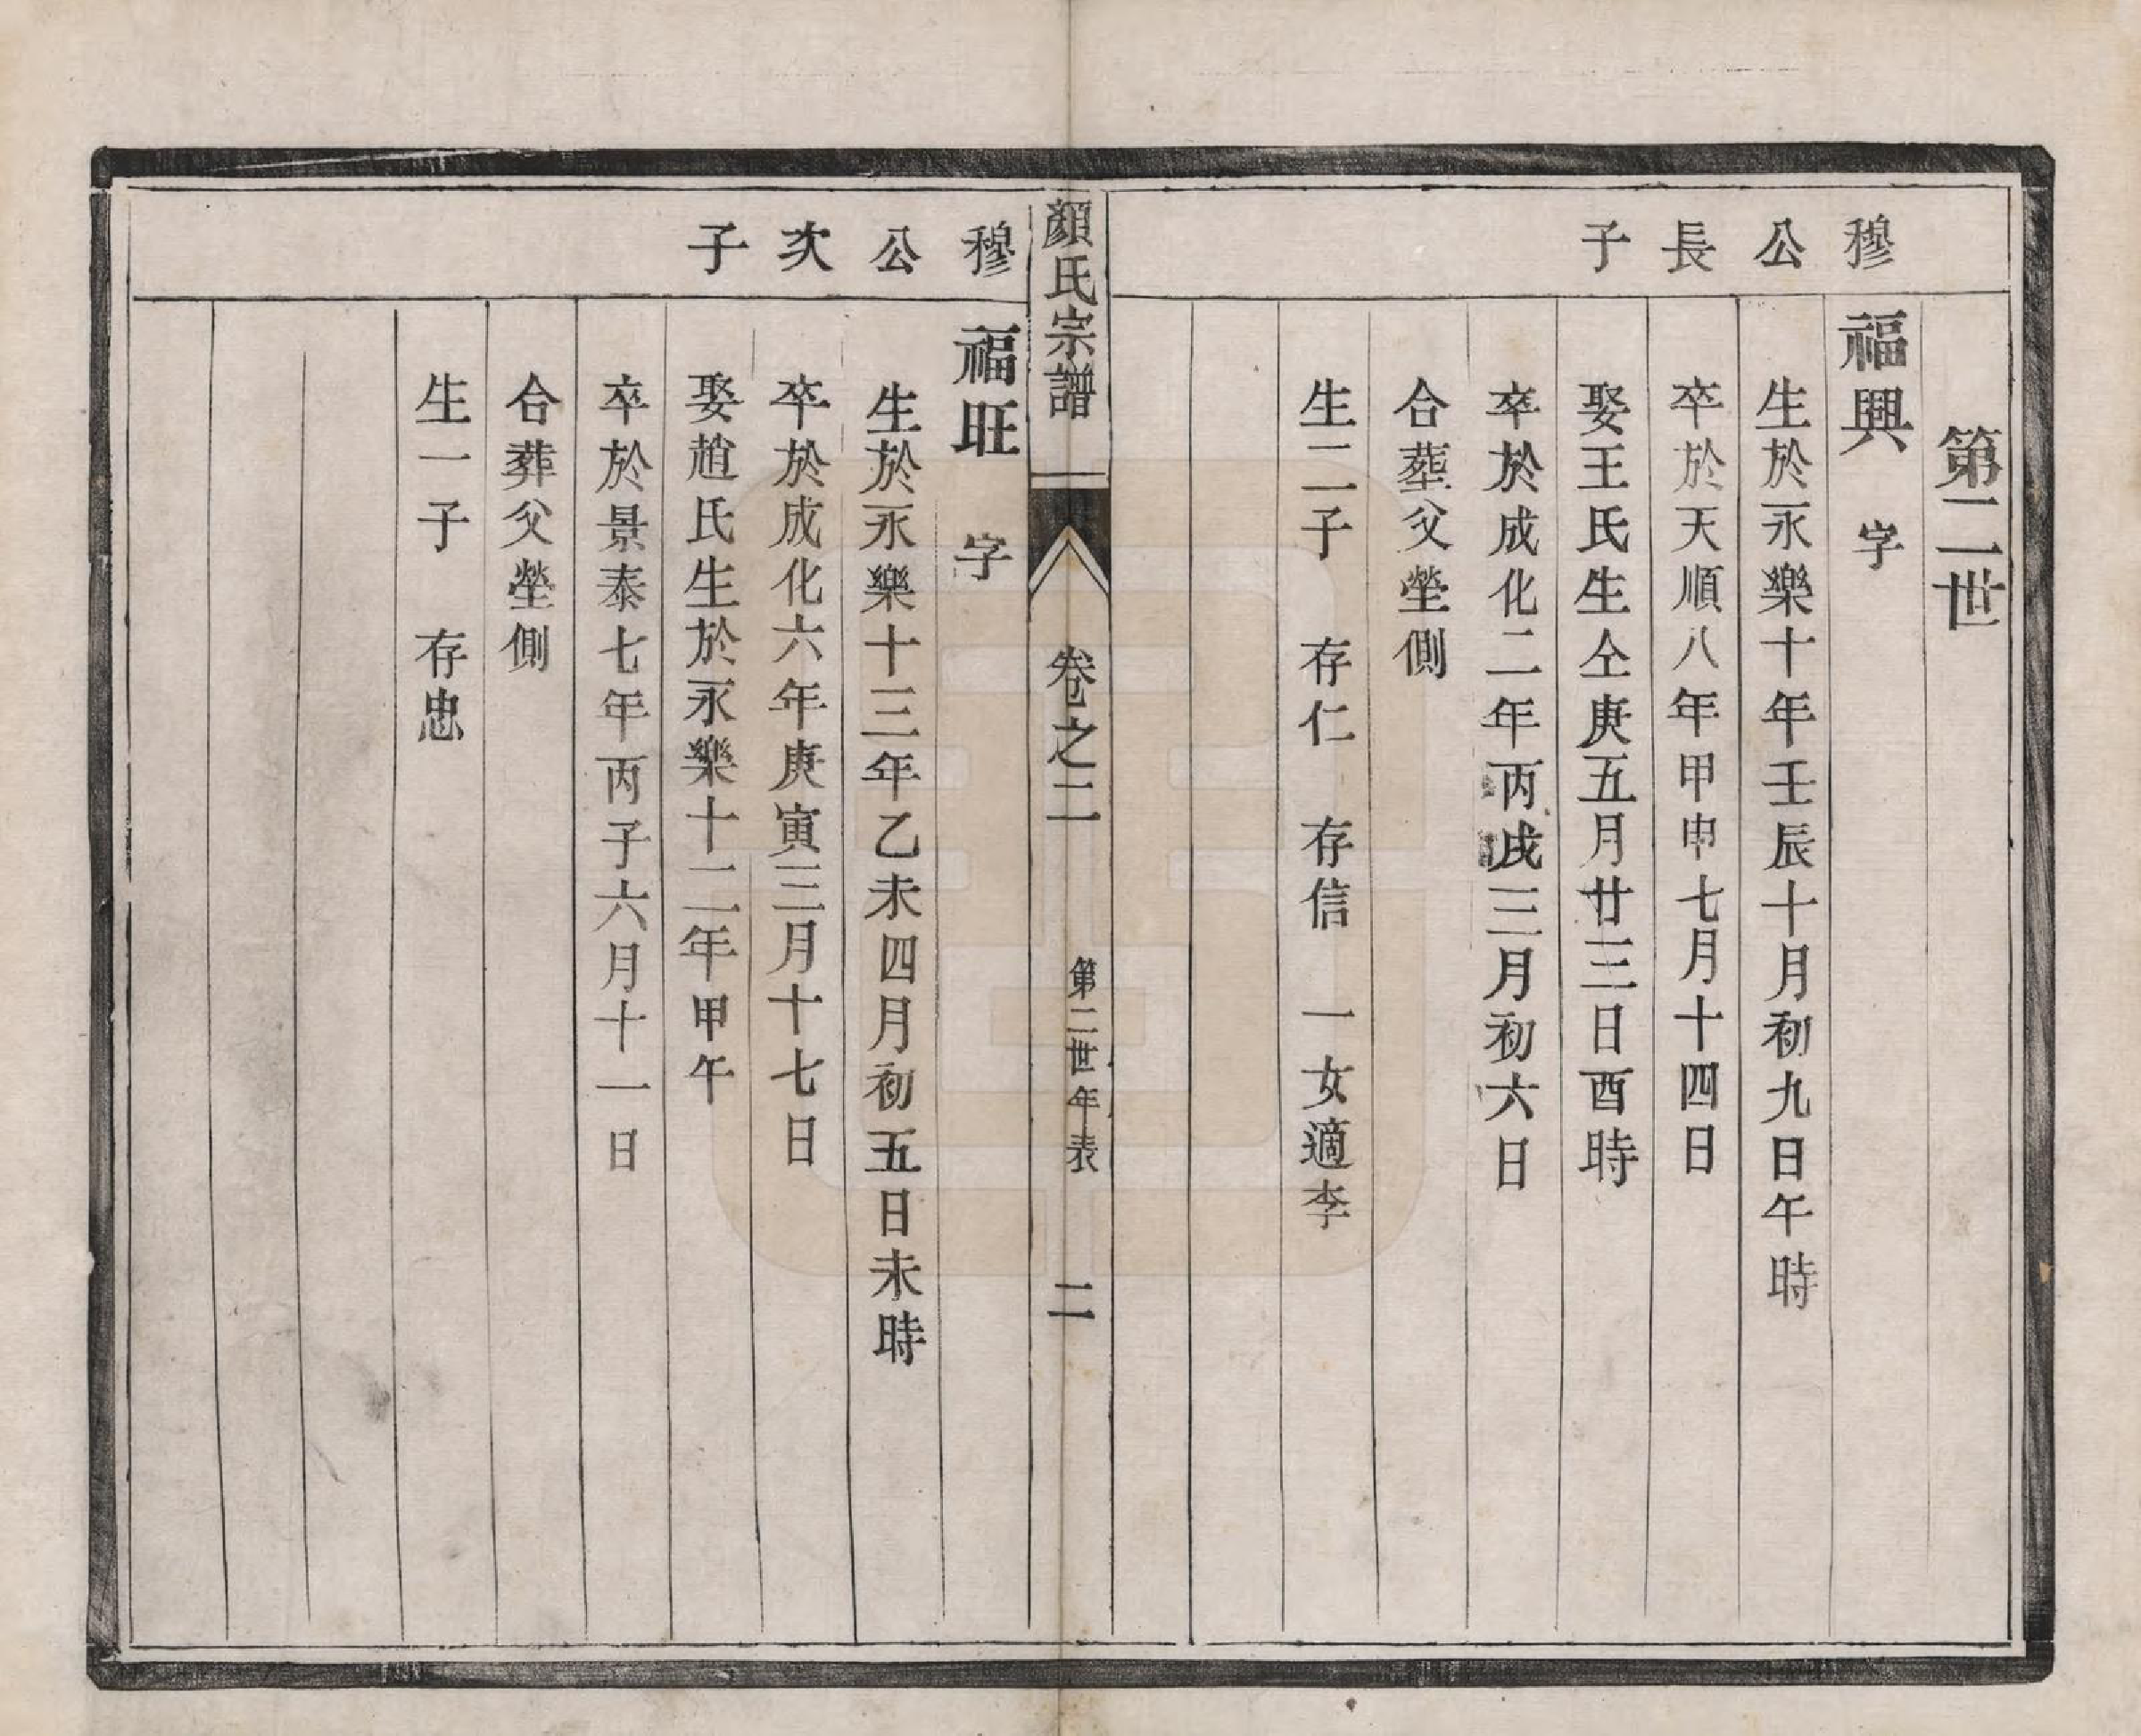 第二世
穆公長子
福興 字
生於永樂十年壬辰十月初九日午時
卒於天順八年甲申七月十四日
娶王氏生仝庚五月廿三日酉時
卒於成化二年丙戌三月初六日
合塟父塋側
生二子 存仁 存信 一女適李
顏氏宗譜 卷之二 第二世年表 二
穆公次子
福旺 字
生於永樂十三年乙未四月初五日未時
卒於成化六年庚寅三月十七日
娶趙氏生於永樂十二年甲午
卒於景泰七年丙子六月十一日
合葬父塋側
生一子 存忠